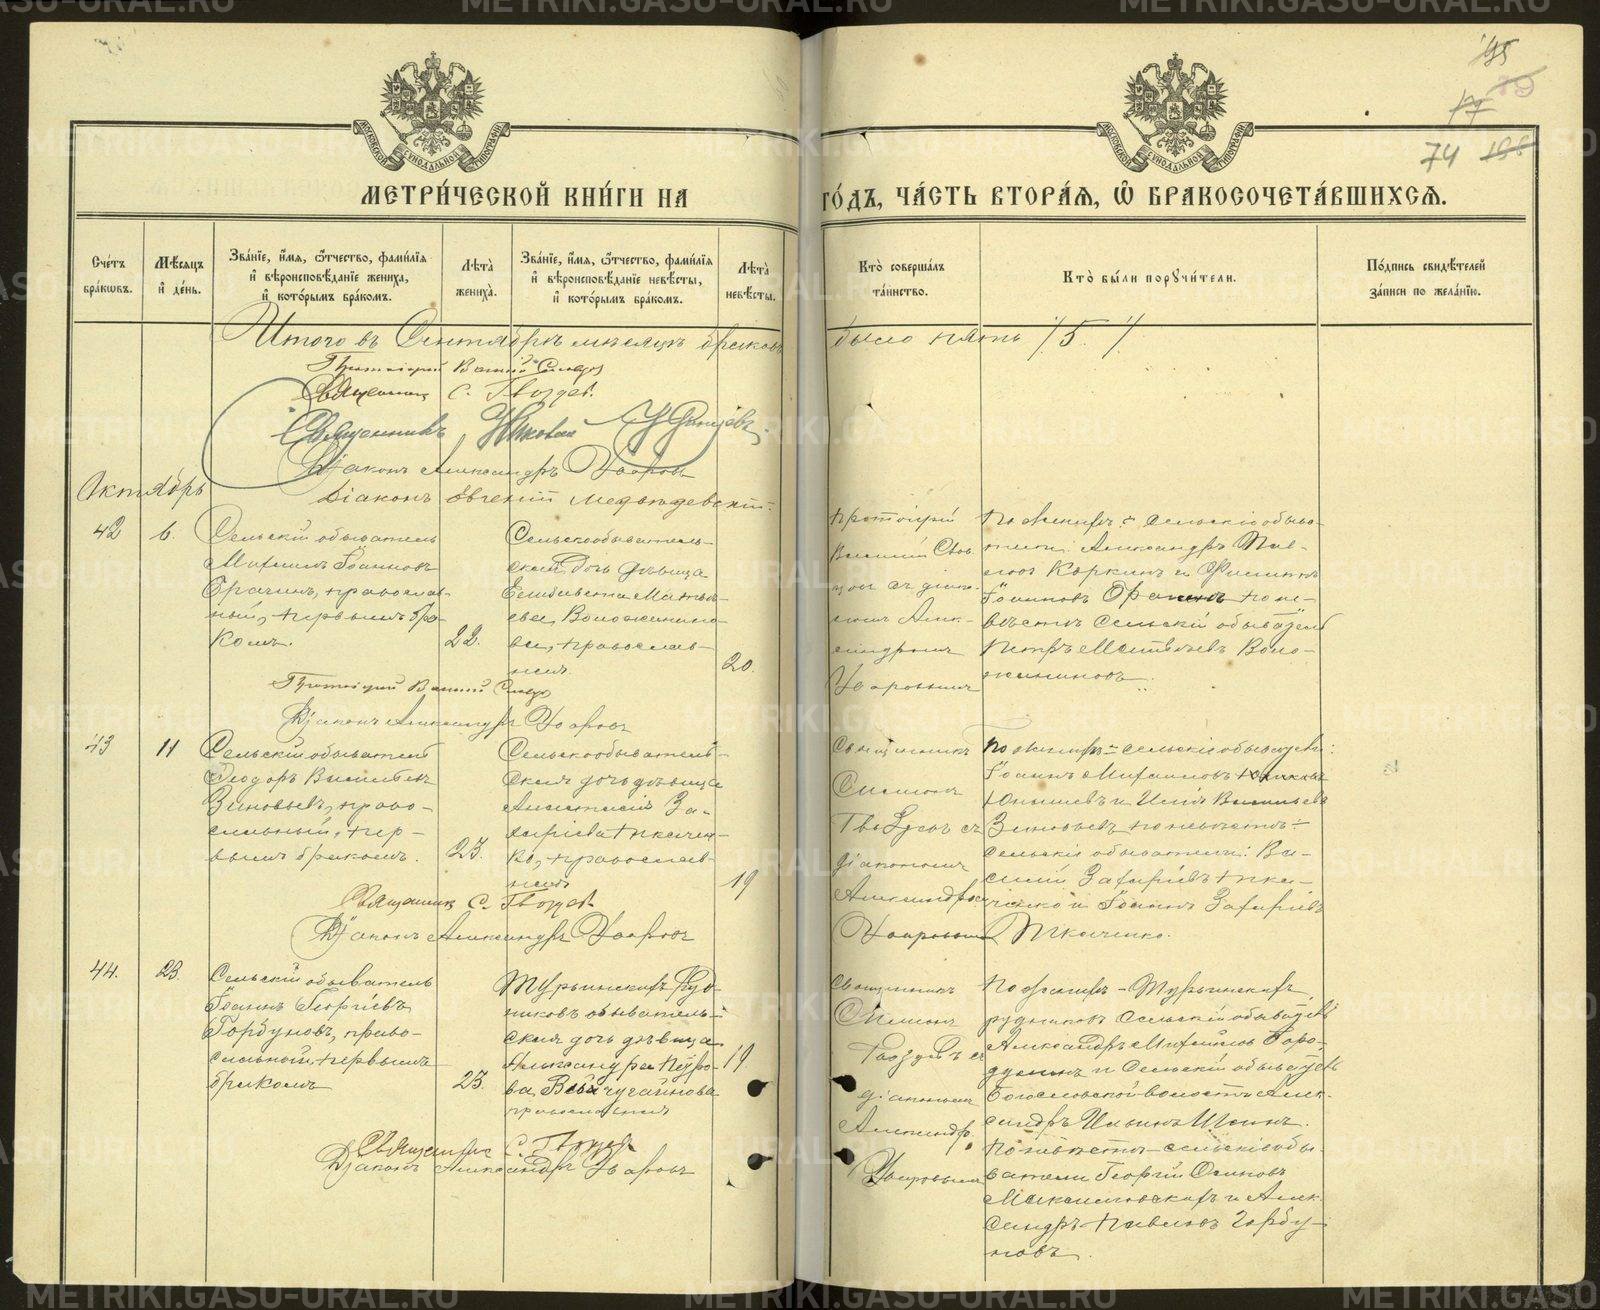 МЕТРИ́ЧЕСКОЙ КНИ́ГИ НА ГО́ДЪ, ЧА́СТЬ ВТОРА́Я, Ѡ҆ БРАКОСОЧЕТА́ВШИХСЯ.
74
Сче́тъ бра́кѡвъ.
Мѣ́сяцъ и҆ де́нь.
Зва́нїе, и҆́мя, ѻ҆́тчество, фами́лїя
и҆ вѣроисповѣ́данїе жениха̀,
и҆ кото́рымъ бра́комъ.
Лѣ́та жениха̀.
Зва́нїе, и҆́мя, ѻ҆́тчество, фами́лїя
и҆ вѣроисповѣ́данїе невѣ́сты,
и҆ кото́рымъ бра́комъ.
Лѣ́та невѣ́сты.
Кто̀ соверша́лъ та́инство.
Кто̀ бы́ли порꙋчи́тели.
По́дпись свидѣ́телей за́писи по жела́нїю.
Итого въ Сентябрѣ мѣсяцѣ браковъ было пять /5/
Протоіерей Василій Словцовъ
Священникъ С. Гвоздевъ
Священникъ Николай
Діаконъ Александръ Уваровъ
Діаконъ Евгеній Медвѣдевскій
Октябрь
42
6.
Сельскій обыватель
Михаилъ Іоанновъ
православ-
ный, первымъ бра-
комъ.
22.
Сельскообыватель-
ская дочь дѣвица
Елисавета Матвѣ-
ева Воложанино-
ва, православ-
ная
20.
Протоіерей
Василій Слов-
цовъ съ діако-
номъ Алек-
сандромъ
Уваровымъ
По женихѣ: сельскіе обыва-
тели Александръ Пав-
ловъ Коркинъ и Филиппъ
Іоанновъ по не-
вѣстѣ Сельскій обыватель
Петръ Матвѣевъ Воло-
жаниновъ.
Протоіерей Василій Словцовъ
Діаконъ Александръ Уваровъ
43
11
Сельскій обыватель
Ѳеодоръ Васильевъ
Зиновьевъ, право-
славный, пер-
вымъ бракомъ.
23.
Сельскообыватель-
ская дочь дѣвица
Анастасія За-
харіева Ткачен-
ко, православ-
ная
19
Священникъ
Симеонъ
Гвоздевъ съ
діакономъ
Александромъ
Уваровымъ
По женихѣ: сельскіе обыватели:
Іоаннъ Михаиловъ
и Илія Васильевъ
Зиновьевъ по невѣстѣ:
сельскіе обыватели: Ва-
силій Захаріевъ Тка-
ченко и Іоаннъ Захаріевъ
Ткаченко.
Священникъ С. Гвоздевъ
Діаконъ Александръ Уваровъ
44.
23.
Сельскій обыватель
Іоаннъ Георгіевъ
Горбуновъ, право-
славный, первымъ
бракомъ
23.
Турьинскихъ Руд-
никовъ обыватель-
ская дочь дѣвица
Александра Петро-
ва
православная
19
Священникъ
Симеонъ
Гвоздевъ съ
діакономъ
Александр.
Уваровымъ
По женихѣ - Турьинскихъ
рудниковъ Сельскій обыватель
Александръ Михаиловъ Боро-
динъ и Сельскій обыватель
Богословской волости Алек-
сандръ Ильинъ
По невѣстѣ - сельскіе обы-
ватели Георгій Осиповъ
Максимовскихъ и Алек-
сандръ Павловъ Горбу-
новъ.
Священникъ С. Гвоздевъ
Діаконъ Александръ Уваровъ
METRIKI.GASO-URAL.RU